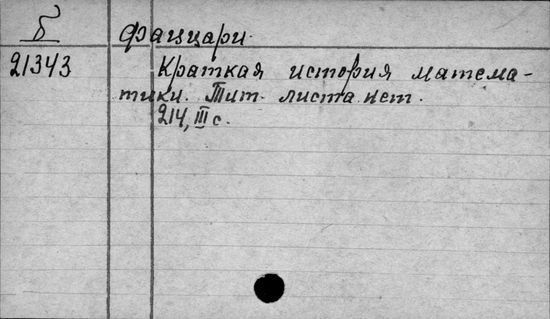 Б
21343
Фаццари.
Краткая история матема-
тики. Тит. листа нет.
214, III с.